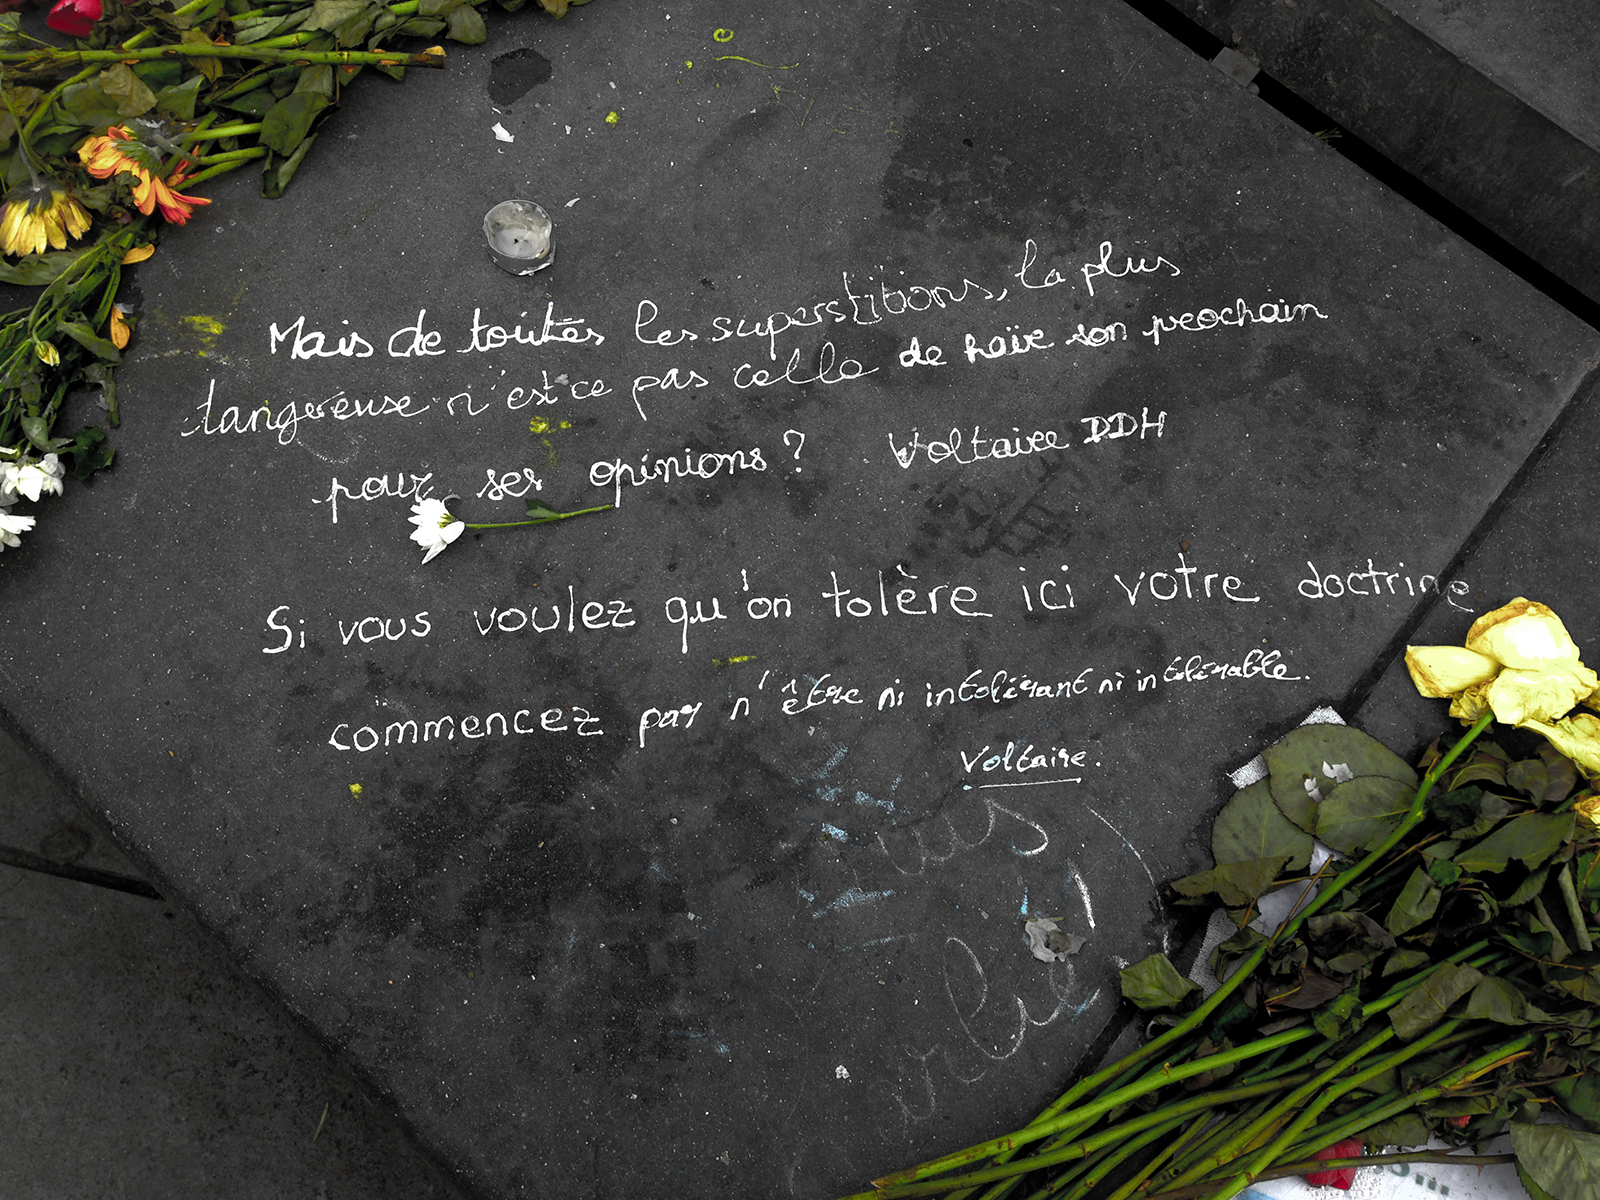 Mais de toutes les superstitions, la plus
dangereuse n'est ce pas celle de haïr son prochain
pour ses opinions ? Voltaire DDH
Si vous voulez qu'on tolère ici votre doctrine
commencez par n'être ni intolérant ni intolérable.
Voltaire.